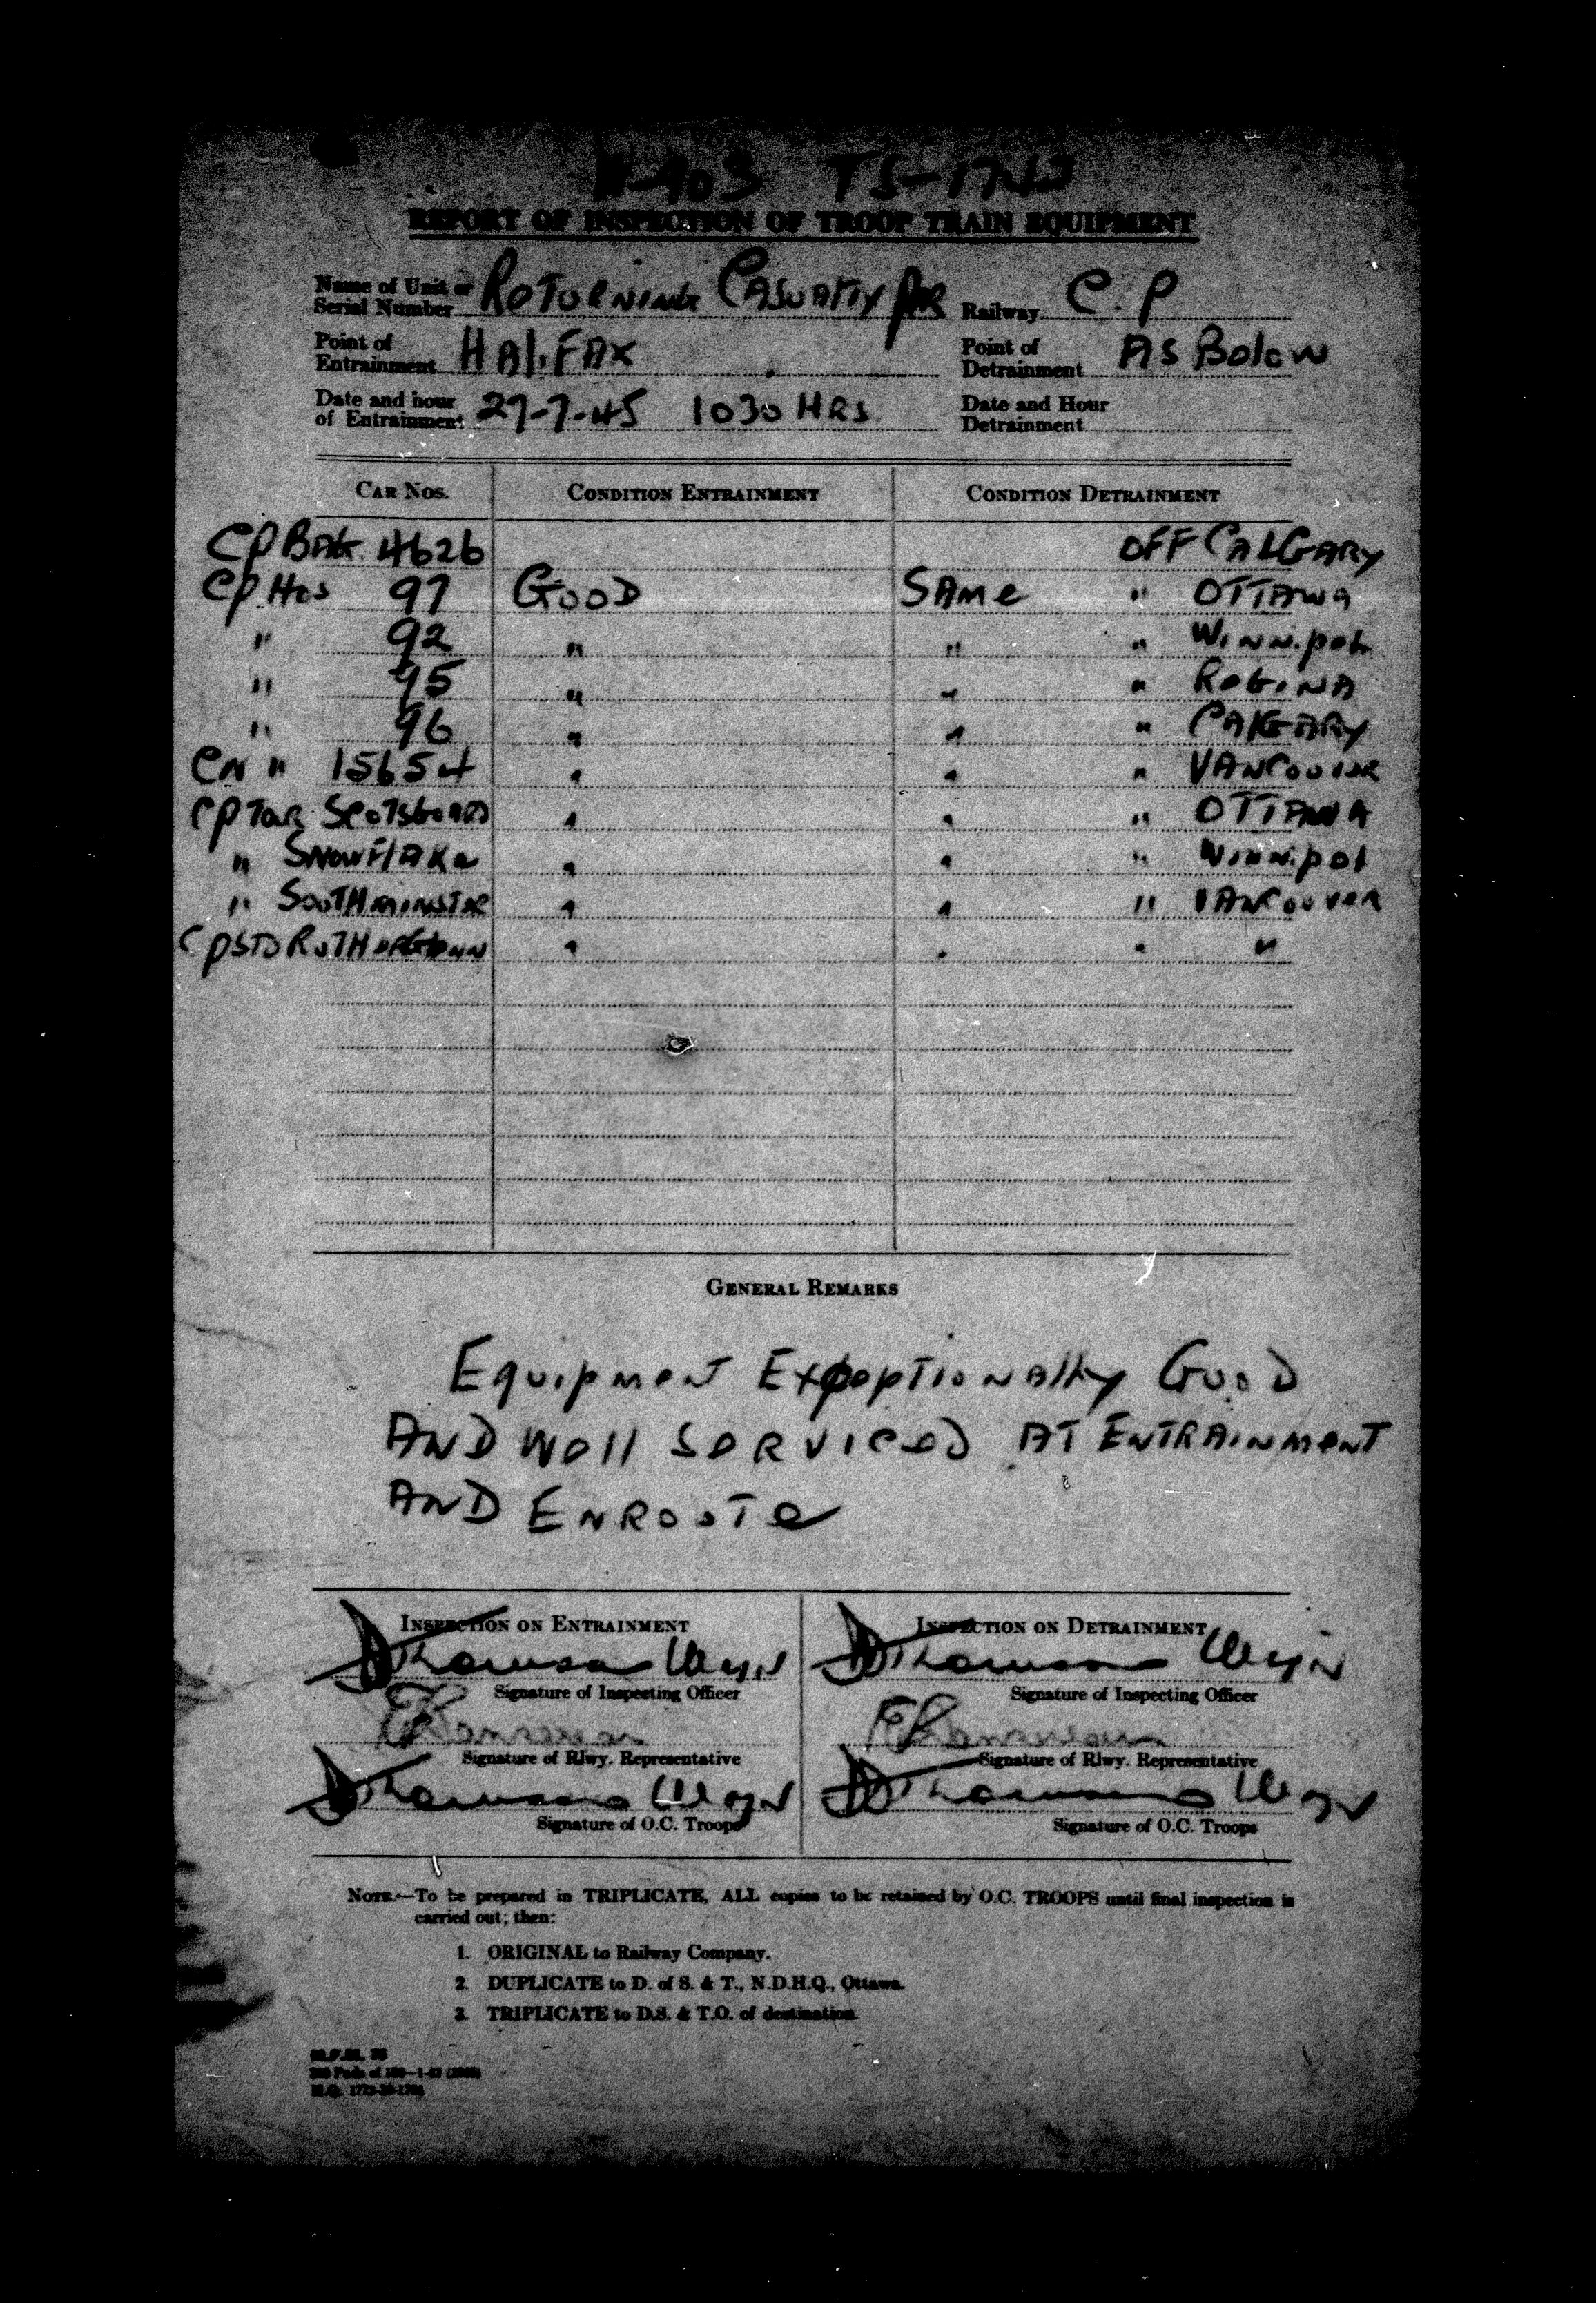 W-903 TS-1743
REPORT OF INSPECTION OF TROOP TRAIN EQUIPMENT
Name of Unit or Serial Number Returning Casualty Railway C.P
Point of Entrainment Halifax Point of Detrainment As Below
Date and hour of Entrainment 27-7-45 1030 HRS Date and Hour Detrainment
CAR NOS. CONDITION ENTRAINMENT CONDITION DETRAINMENT
CP BAG. 4626 OFF CALGARY
CP Hos 97 GOOD SAME " OTTAWA
" 92 " " " Winnipeg
" 95 " " " REGINA
" 96 " " " CALGARY
CN " 15654 " " " VANCOUVER
CP Tor SCOTSGUARD " " " OTTAWA
" SNOWFLAKE " " " Winnipeg
" SOUTHMINSTER " " " VANCOUVER
CP STD RUTHERGLENN " " " "
GENERAL REMARKS
Equipment Exceptionally Good
AND Well SERVICED AT ENTRAINMENT
AND ENROUTE
INSPECTION ON ENTRAINMENT INSPECTION ON DETRAINMENT
Thomson Thomson
Signature of Inspecting Officer Signature of Inspecting Officer
Signature of Rlwy. Representative Signature of Rlwy. Representative
Thomson Thomson
Signature of O.C. Troops Signature of O.C. Troops
NOTE.—To be prepared in TRIPLICATE, ALL copies to be retained by O.C. TROOPS until final inspection is
carried out; then:
1. ORIGINAL to Railway Company.
2. DUPLICATE to D. of S. & T., N.D.H.Q., Ottawa.
3. TRIPLICATE to D.S. & T.O. of destination.